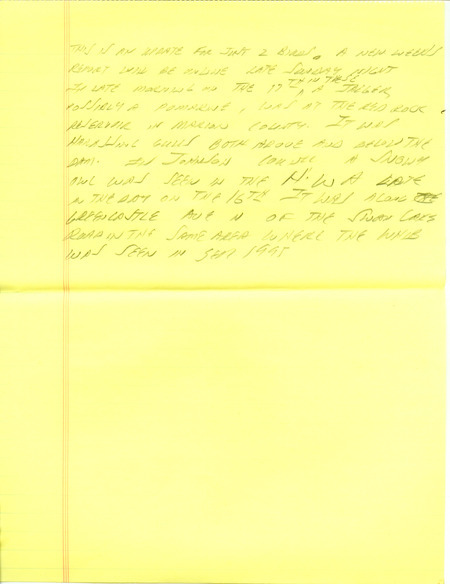 THIS IS AN UPDATE FOR JUST 2 BIRDS. A NEW WEEK'S
REPORT WILL BE ONLINE LATE SUNDAY NIGHT
IN LATE MORNING ON THE 17TH A JAEGER,
POSSIBLY A POMARINE, WAS AT THE RED ROCK
RESERVOIR IN MARION COUNTY. IT WAS
HARASSING GULLS BOTH ABOVE AND BELOW THE
DAM. IN JOHNSON COUNTY A SNOWY
OWL WAS SEEN IN THE H.W.A LATE
IN THE DAY ON THE 16TH IT WAS ALONG
GREENCASTLE AVE N OF THE SWAN LAKE
ROAD IN THE SAME AREA WHERE THE
WAS SEEN IN SEP 1995